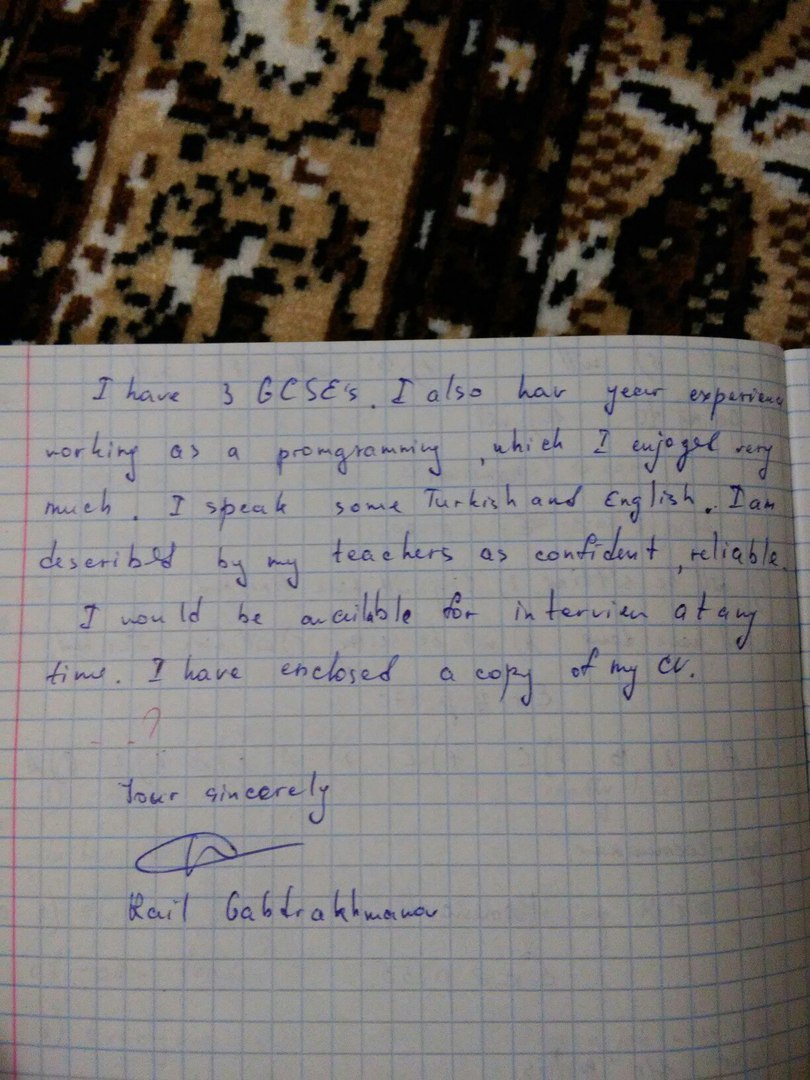 I have 3 GCSE's. I also hav year experience
working as a promgramming, which I enjoyed very
much. I speak some Turkish and English. I am
described by my teachers as confident, reliable.
I would be available for interview at any
time. I have enclosed a copy of my CV.
?
Your sincerely
Gabdrakhmanov